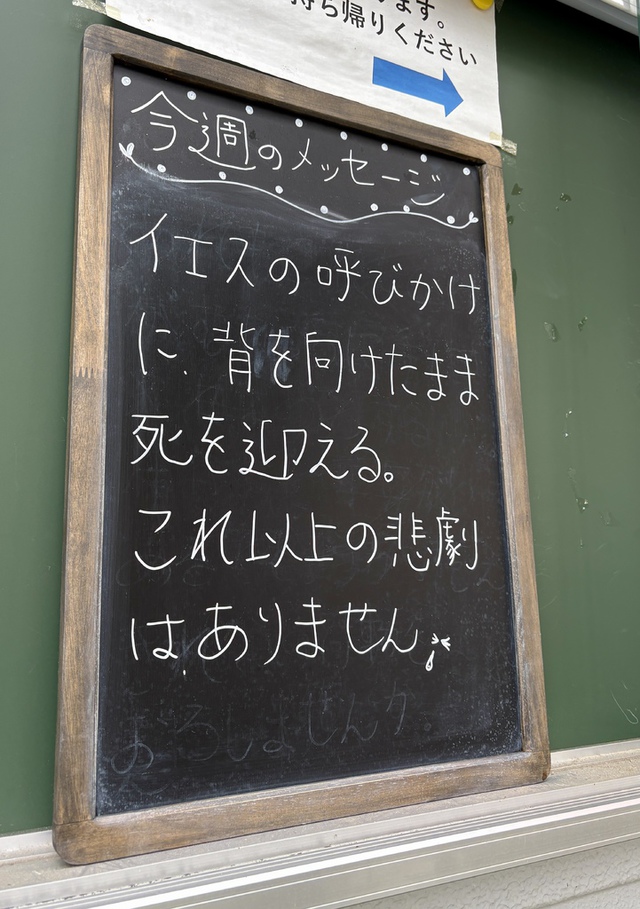 ます。
持ち帰りください
今週のメッセージ
イエスの呼びかけ
に、背を向けたまま
死を迎える。
これ以上の悲劇
は、ありません